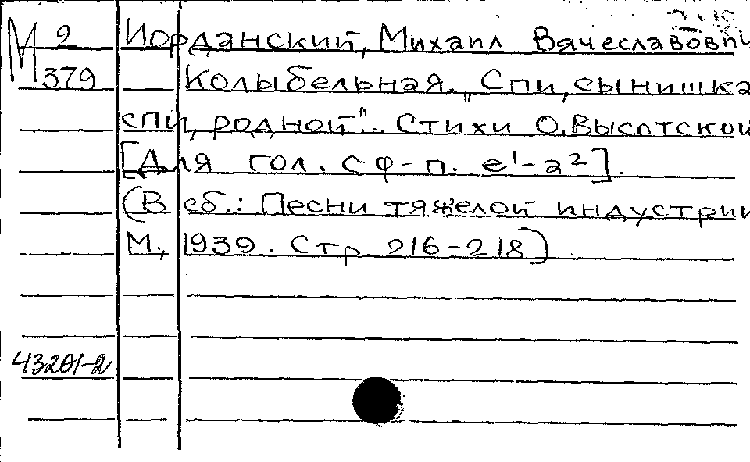 М 9 Иорданский, Михаил Вячеславови
379 Колыбельная. "Спи, сынишка
спи, родной". Стихи О. Высотской
[Для гол. с ф-п. e¹-a²].
(В сб.: Песни тяжелой индустрии
М., 1939. Стр 216-218)
43201-2